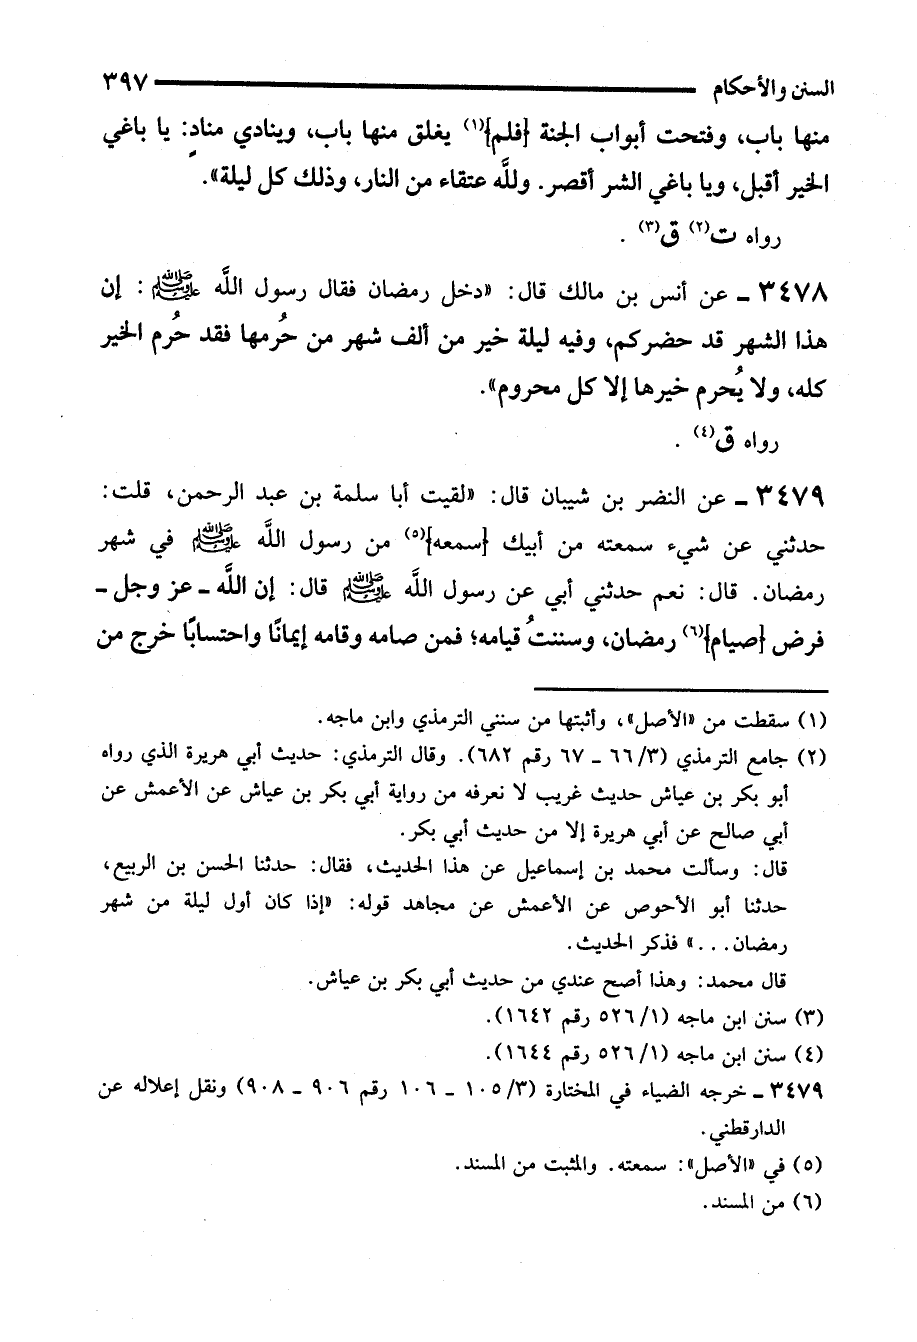 السنن والأحكام ٣٩٧
منها باب، وفتحت أبواب الجنة {فلم}(١) يغلق منها باب، وينادي منادٍ: يا باغي
الخير أقبل، ويا باغي الشر أقصر. وللَّه عتقاء من النار، وذلك كل ليلة».
رواه ت(٢) ق(٣) .
٣٤٧٨ ـ عن أنس بن مالك قال: «دخل رمضان فقال رسول اللَّه ﷺ : إن
هذا الشهر قد حضركم، وفيه ليلة خير من ألف شهر من حُرمها فقد حُرم الخير
كله، ولا يُحرم خيرها إلا كل محروم».
رواه ق(٤) .
٣٤٧٩ ـ عن النضر بن شيبان قال: «لقيت أبا سلمة بن عبد الرحمن، قلت:
حدثني عن شيء سمعته من أبيك {سمعه}(٥) من رسول اللَّه ﷺ في شهر
رمضان. قال: نعم حدثني أبي عن رسول اللَّه ﷺ قال: إن اللَّه ـ عز وجل ـ
فرض {صيام}(٦) رمضان، وسننتُ قيامه؛ فمن صامه وقامه إيمانًا واحتسابًا خرج من
(١) سقطت من «الأصل»، وأثبتها من سنني الترمذي وابن ماجه.
(٢) جامع الترمذي (٣/ ٦٦ ـ ٦٧ رقم ٦٨٢). وقال الترمذي: حديث أبي هريرة الذي رواه
أبو بكر بن عياش حديث غريب لا نعرفه من رواية أبي بكر بن عياش عن الأعمش عن
أبي صالح عن أبي هريرة إلا من حديث أبي بكر.
قال: وسألت محمد بن إسماعيل عن هذا الحديث، فقال: حدثنا الحسن بن الربيع،
حدثنا أبو الأحوص عن الأعمش عن مجاهد قوله: «إذا كان أول ليلة من شهر
رمضان...» فذكر الحديث.
قال محمد: وهذا أصح عندي من حديث أبي بكر بن عياش.
(٣) سنن ابن ماجه (١/ ٥٢٦ رقم ١٦٤٢).
(٤) سنن ابن ماجه (١/ ٥٢٦ رقم ١٦٤٤).
٣٤٧٩ ـ خرجه الضياء في المختارة (٣/ ١٠٥ ـ ١٠٦ رقم ٩٠٦ ـ ٩٠٨) ونقل إعلاله عن
الدارقطني.
(٥) في «الأصل»: سمعته. والمثبت من المسند.
(٦) من المسند.